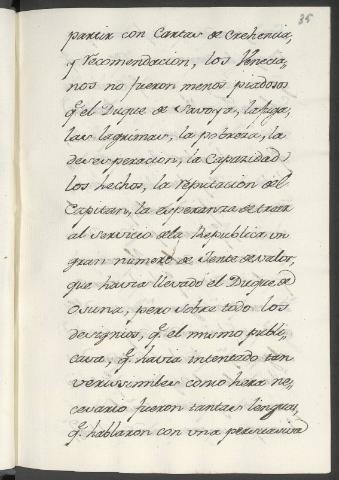 35
partir con Cartas de Crehencia,
y recomendacion, los Venecia,
nos no fueron menos piadosos
q.e el Duque de Savoya, la fuga,
las lagrimas, la pobreza, la
desesperacion, la Capazidad
los hechos, la reputacion del
Capitan, la esperanza de traer
al servicio dela Republica un
gran numero de Jente de valor,
que havia llevado el Duque de
Osuna, pero sobre todo los
designios, q.e el mismo publi,
cava, q.e havia intentado tan
verissimiles como hera ne,
cesario fueron tantas lenguas,
q.e hablaron con una persuasiva